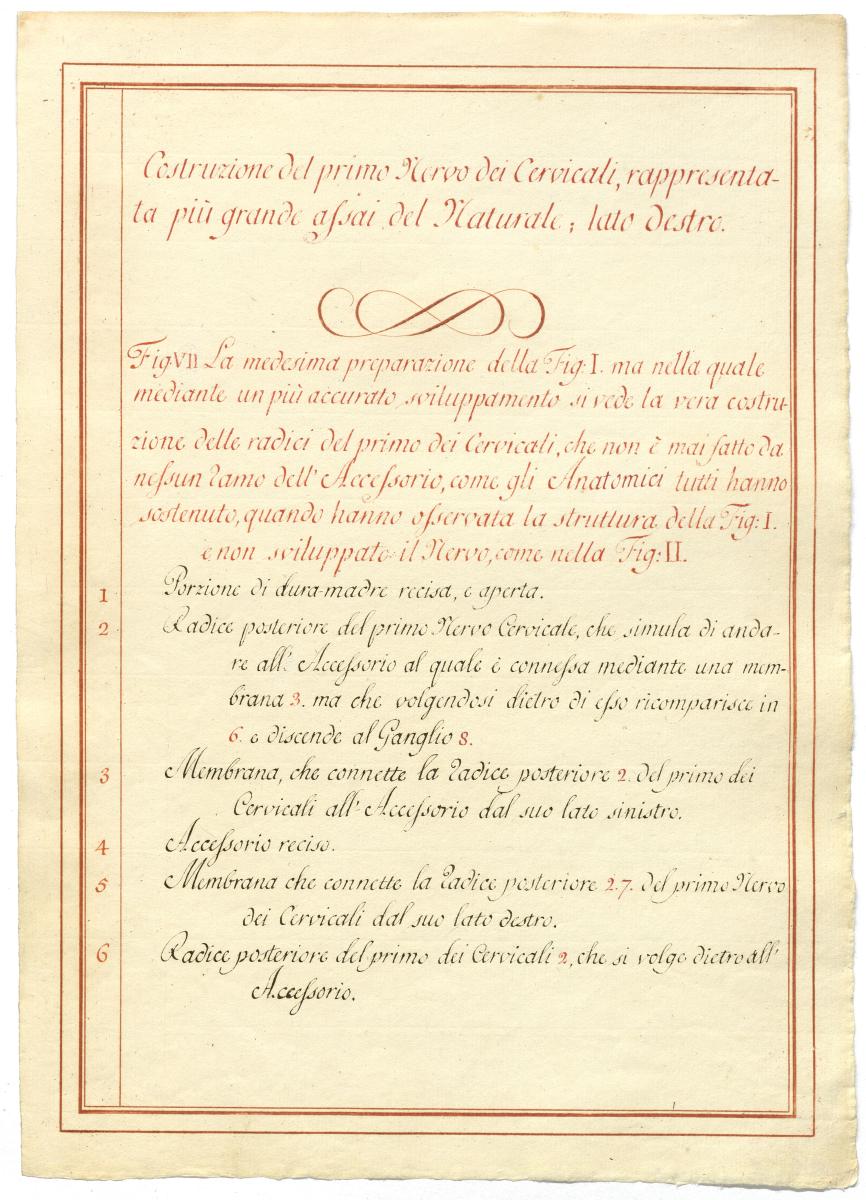 Costruzione del primo Nervo dei Cervicali, rappresenta-
ta più grande aſsai del Naturale; lato destro.
Fig: VII La medesima preparazione della Fig: I. ma nella quale
mediante un più accurato sviluppamento si vede la vera costru-
zione delle radici del primo dei Cervicali, che non è mai fatto da
neſsun ramo dell' Acceſsorio, come gli Anatomici tutti hanno
sostenuto, quando hanno oſservata la struttura della Fig: I.
e non sviluppato il Nervo, come nella Fig: II.
1 Porzione di dura-madre recisa, e aperta.
2 Radice posteriore del primo Nervo Cervicale, che simula di anda-
re all' Acceſsorio al quale è conneſsa mediante una mem-
brana 3. ma che volgendosi dietro di eſso ricomparisce in
6. e discende al Ganglio 8.
3 Membrana, che connette la radice posteriore 2. del primo dei
Cervicali all' Acceſsorio dal suo lato sinistro.
4 Acceſsorio reciso.
5 Membrana che connette la radice posteriore 2.7. del primo Nervo
dei Cervicali dal suo lato destro.
6 Radice posteriore del primo dei Cervicali 2, che si volge dietro all'
Acceſsorio.